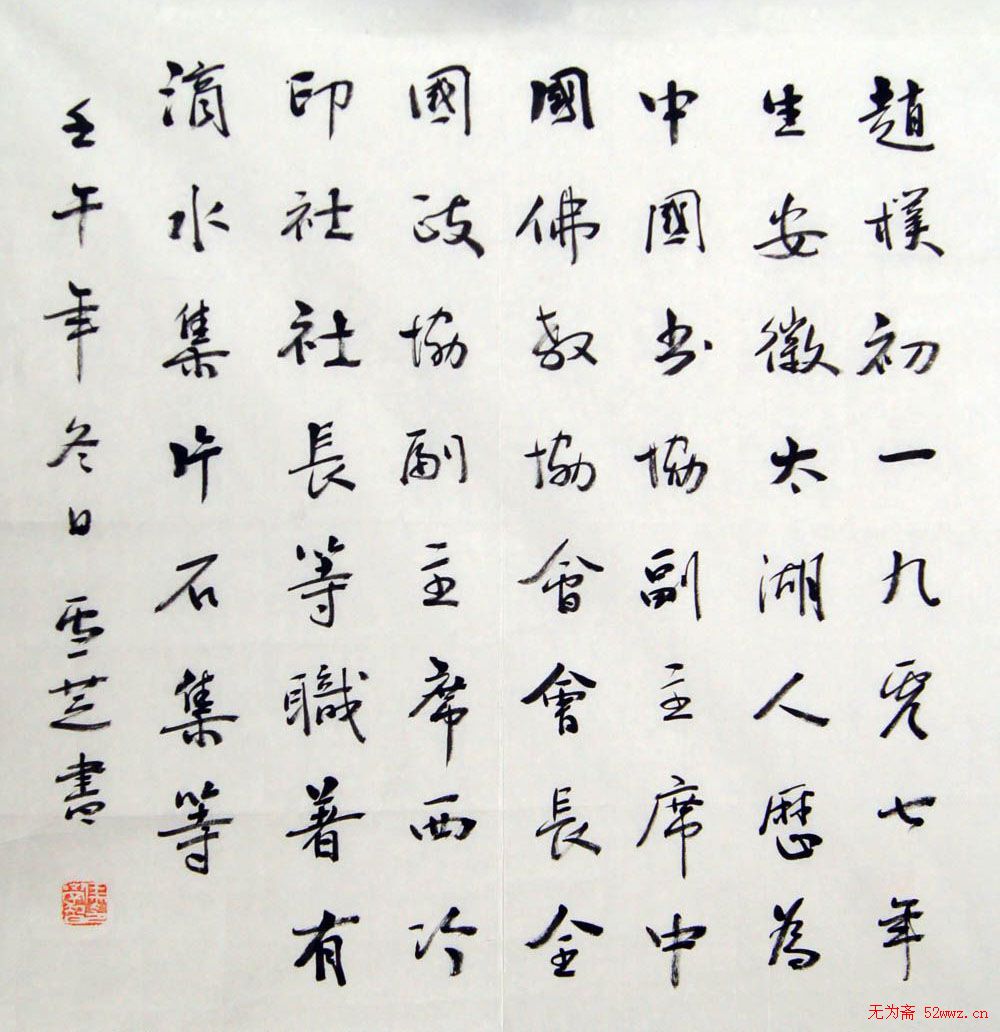 趙樸初一九零七年
生安徽太湖人歷為
中國书協副主席中
國佛教協會會長全
國政協副主席西泠
印社社長等職著有
滴水集片石集等
壬午年冬日雪芝書
无为斋 52wwz.cn